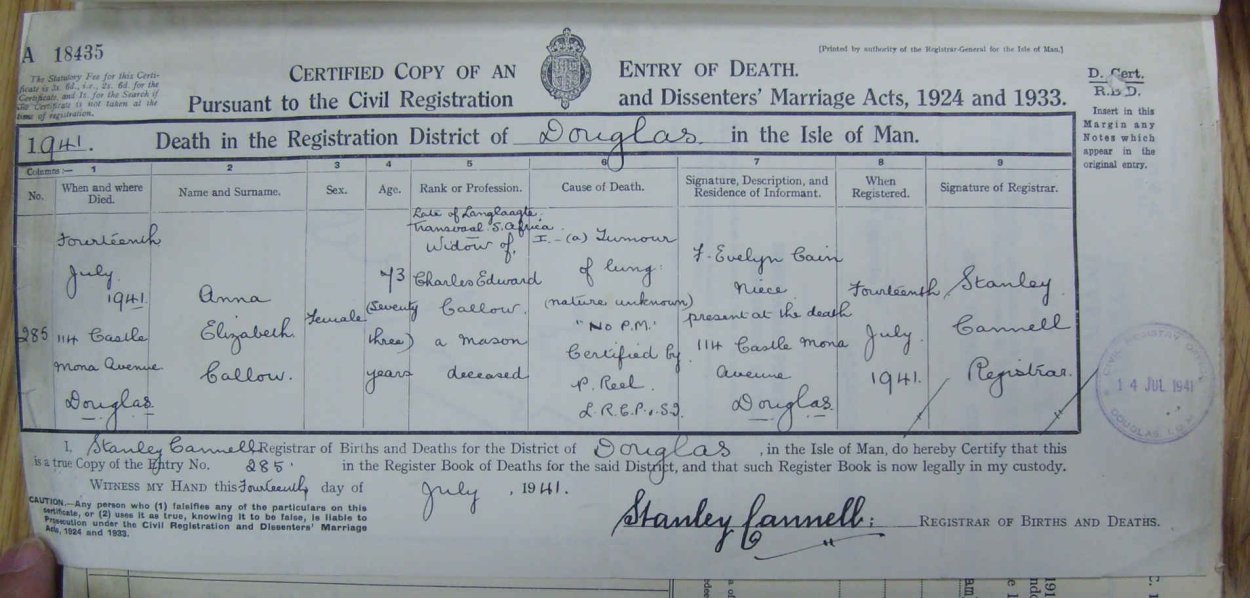 A 18435
[Printed by authority of the Registrar-General for the Isle of Man.]
The Statutory Fee for this Certi-
ficate is 3s. 6d., i.e., 2s. 6d. for the
Certificate, and 1s. for the Search if
the Certificate is not taken at the
time of registration.
CERTIFIED COPY OF AN ENTRY OF DEATH.
Pursuant to the Civil Registration and Dissenters' Marriage Acts, 1924 and 1933.
D. Cert.
R.B.D.
Insert in this
Margin any
Notes which
appear in the
original entry.
1941. Death in the Registration District of Douglas in the Isle of Man.
Columns:— 1 2 3 4 5 6 7 8 9
No.
When and where
Died.
Name and Surname.
Sex.
Age.
Rank or Profession.
Cause of Death.
Signature, Description, and
Residence of Informant.
When
Registered.
Signature of Registrar.
285
Fourteenth
July
1941.
114 Castle
Mona Avenue
Douglas.
Anna
Elizabeth
Callow.
Female
73
(Seventy
three)
years
Late of Langlaagte,
Transvaal S. Africa.
Widow of
Charles Edward
Callow.
a Mason
deceased
I. - (a) Tumour
of lung.
(nature unknown)
"No P.M."
Certified by
P. Reel.
L.R.C.P. & S.I
F. Evelyn Cain
Niece
present at the death
114 Castle Mona
Avenue
Douglas.
Fourteenth
July
1941.
Stanley
Cannell
Registrar.
CIVIL REGISTRY OFFICE
14 JUL 1941
DOUGLAS, I.O.M.
I, Stanley Cannell Registrar of Births and Deaths for the District of Douglas, in the Isle of Man, do hereby Certify that this
is a true Copy of the Entry No. 285. in the Register Book of Deaths for the said District, and that such Register Book is now legally in my custody.
WITNESS MY HAND this Fourteenth day of July, 1941.
CAUTION.—Any person who (1) falsifies any of the particulars on this
certificate, or (2) uses it as true, knowing it to be false, is liable to
Prosecution under the Civil Registration and Dissenters' Marriage
Acts, 1924 and 1933.
Stanley Cannell: REGISTRAR OF BIRTHS AND DEATHS.